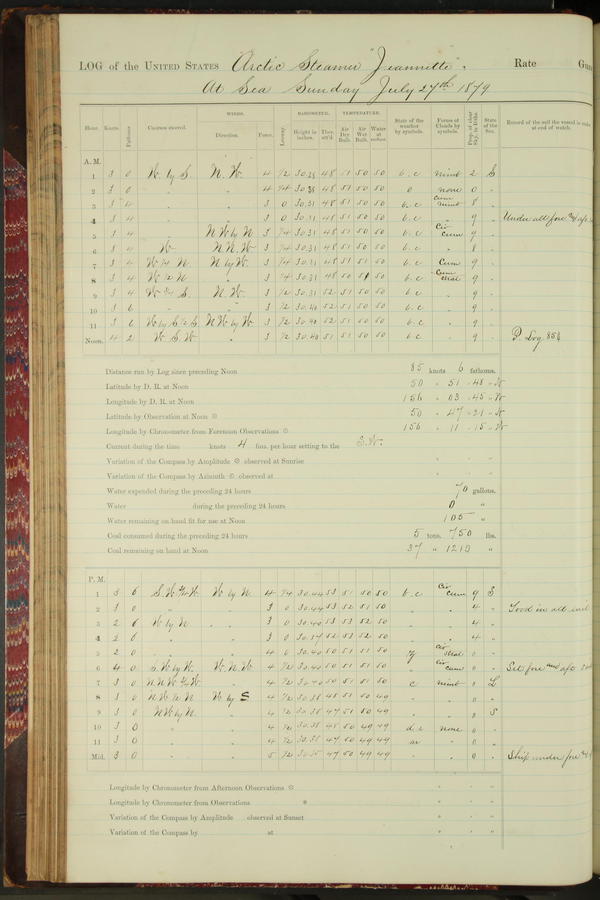 LOG of the UNITED STATES Arctic Steamer "Jeannette", Rate
At Sea Sunday July 27th 1879
WINDS. BAROMETER. TEMPERATURE.
Hour. Knots. Fathoms. Courses steered. Direction. Force. Leeway. Height in inches. Ther. att'd. Air Dry Bulb. Air Wet Bulb. Water at surface. State of the weather by symbols. Forms of Clouds by symbols. State of the Sea. Record of the sail the vessel is under at end of watch.
A. M.
1 3 0 W. by S. N. W. 4 1/2 48 51 50 50 b. c nimb 2 S
2 3 0 " " 4 1/4 48 51 50 50 o none 0 "
3 3 4 " " 3 0 30.31 48 51 50 50 b. c cum nimb 8 "
4 3 4 " " 3 0 30.31 48 51 50 50 b. c " 9 " Under all fore and aft
5 3 4 " N W by N 3 1/4 30.31 48 51 50 50 b. c Cir cum 9 "
6 3 4 W. N. N. W. 3 1/4 30.31 48 51 50 50 b. c " 8 "
7 3 4 W 1/4 N. N by W. 3 1/4 30.31 48 51 51 50 b. c Cum 9 "
8 3 4 W 1/2 N " 3 1/4 30.31 48 50 51 50 b. c Cum strat 9 "
9 3 4 W 3/4 S. N. W. 3 1/2 30.31 52 51 50 50 b. c " 9 "
10 3 6 " " 3 1/2 30.40 52 51 50 50 b. c " 9 "
11 3 6 W by S 1/2 S. N W. by W. 3 1/2 30.40 52 51 50 50 b. c " 9 "
Noon. 4 2 W. S. W. " 3 1/2 30.40 51 51 50 50 b c " 9 " P. Log
Distance run by Log since preceding Noon 85 knots 6 fathoms.
Latitude by D. R. at Noon 50 ° 51 ' 48 " N
Longitude by D. R. at Noon 156 ° 03 ' 45 " W
Latitude by Observation at Noon 50 ° 47 ' 21 " N
Longitude by Chronometer from Forenoon Observations 156 ° 11 ' 15 " W
Current during the time knots 4 fms. per hour setting to the S. W.
Variation of the Compass by Amplitude observed at Sunrise ° ' "
Variation of the Compass by Azimuth observed at ° ' "
Water expended during the preceding 24 hours 70 gallons.
Water during the preceding 24 hours 0 "
Water remaining on hand fit for use at Noon 105 "
Coal consumed during the preceding 24 hours 5 tons. 750 lbs.
Coal remaining on hand at Noon 37 " 1210 "
P. M.
1 3 6 S. W. 3/4 W. W. by N. 4 1/4 30.44 53 51 50 50 b. c Cir cum 9 S
2 3 0 " " 3 0 30.44 53 52 51 50 " " 4 " Good in all sail
3 2 6 W by N. " 3 0 30.40 53 53 52 50 " " 4 "
4 2 6 " " 3 0 52 53 52 50 " " 4 "
5 2 0 " " 4 0 30.40 50 51 51 50 Cir strat 0 "
6 4 0 S. W. by W. W. N. W. 4 1/2 30.40 50 51 51 50 " Cir cum 0 " Set fore and aft
7 3 0 N. W. 4 1/2 50 51 51 50 c nimb 0 L
8 3 0 N. W. 1/2 N W. by S. 4 1/2 30.38 48 51 50 49 " " 0 "
9 3 0 N W. by N. " 4 1/2 47 51 50 49 " " 0 S
10 3 0 " " 4 1/2 48 50 49 49 none 0 "
11 3 0 " " 4 1/2 47 50 49 49 " 0 "
Mid. 3 0 " " 5 1/2 47 50 49 49 " " 0 " Ship under fore and
Longitude by Chronometer from Afternoon Observations ° ' "
Longitude by Chronometer from Observations ° ' "
Variation of the Compass by Amplitude observed at Sunset ° ' "
Variation of the Compass by at ° ' "